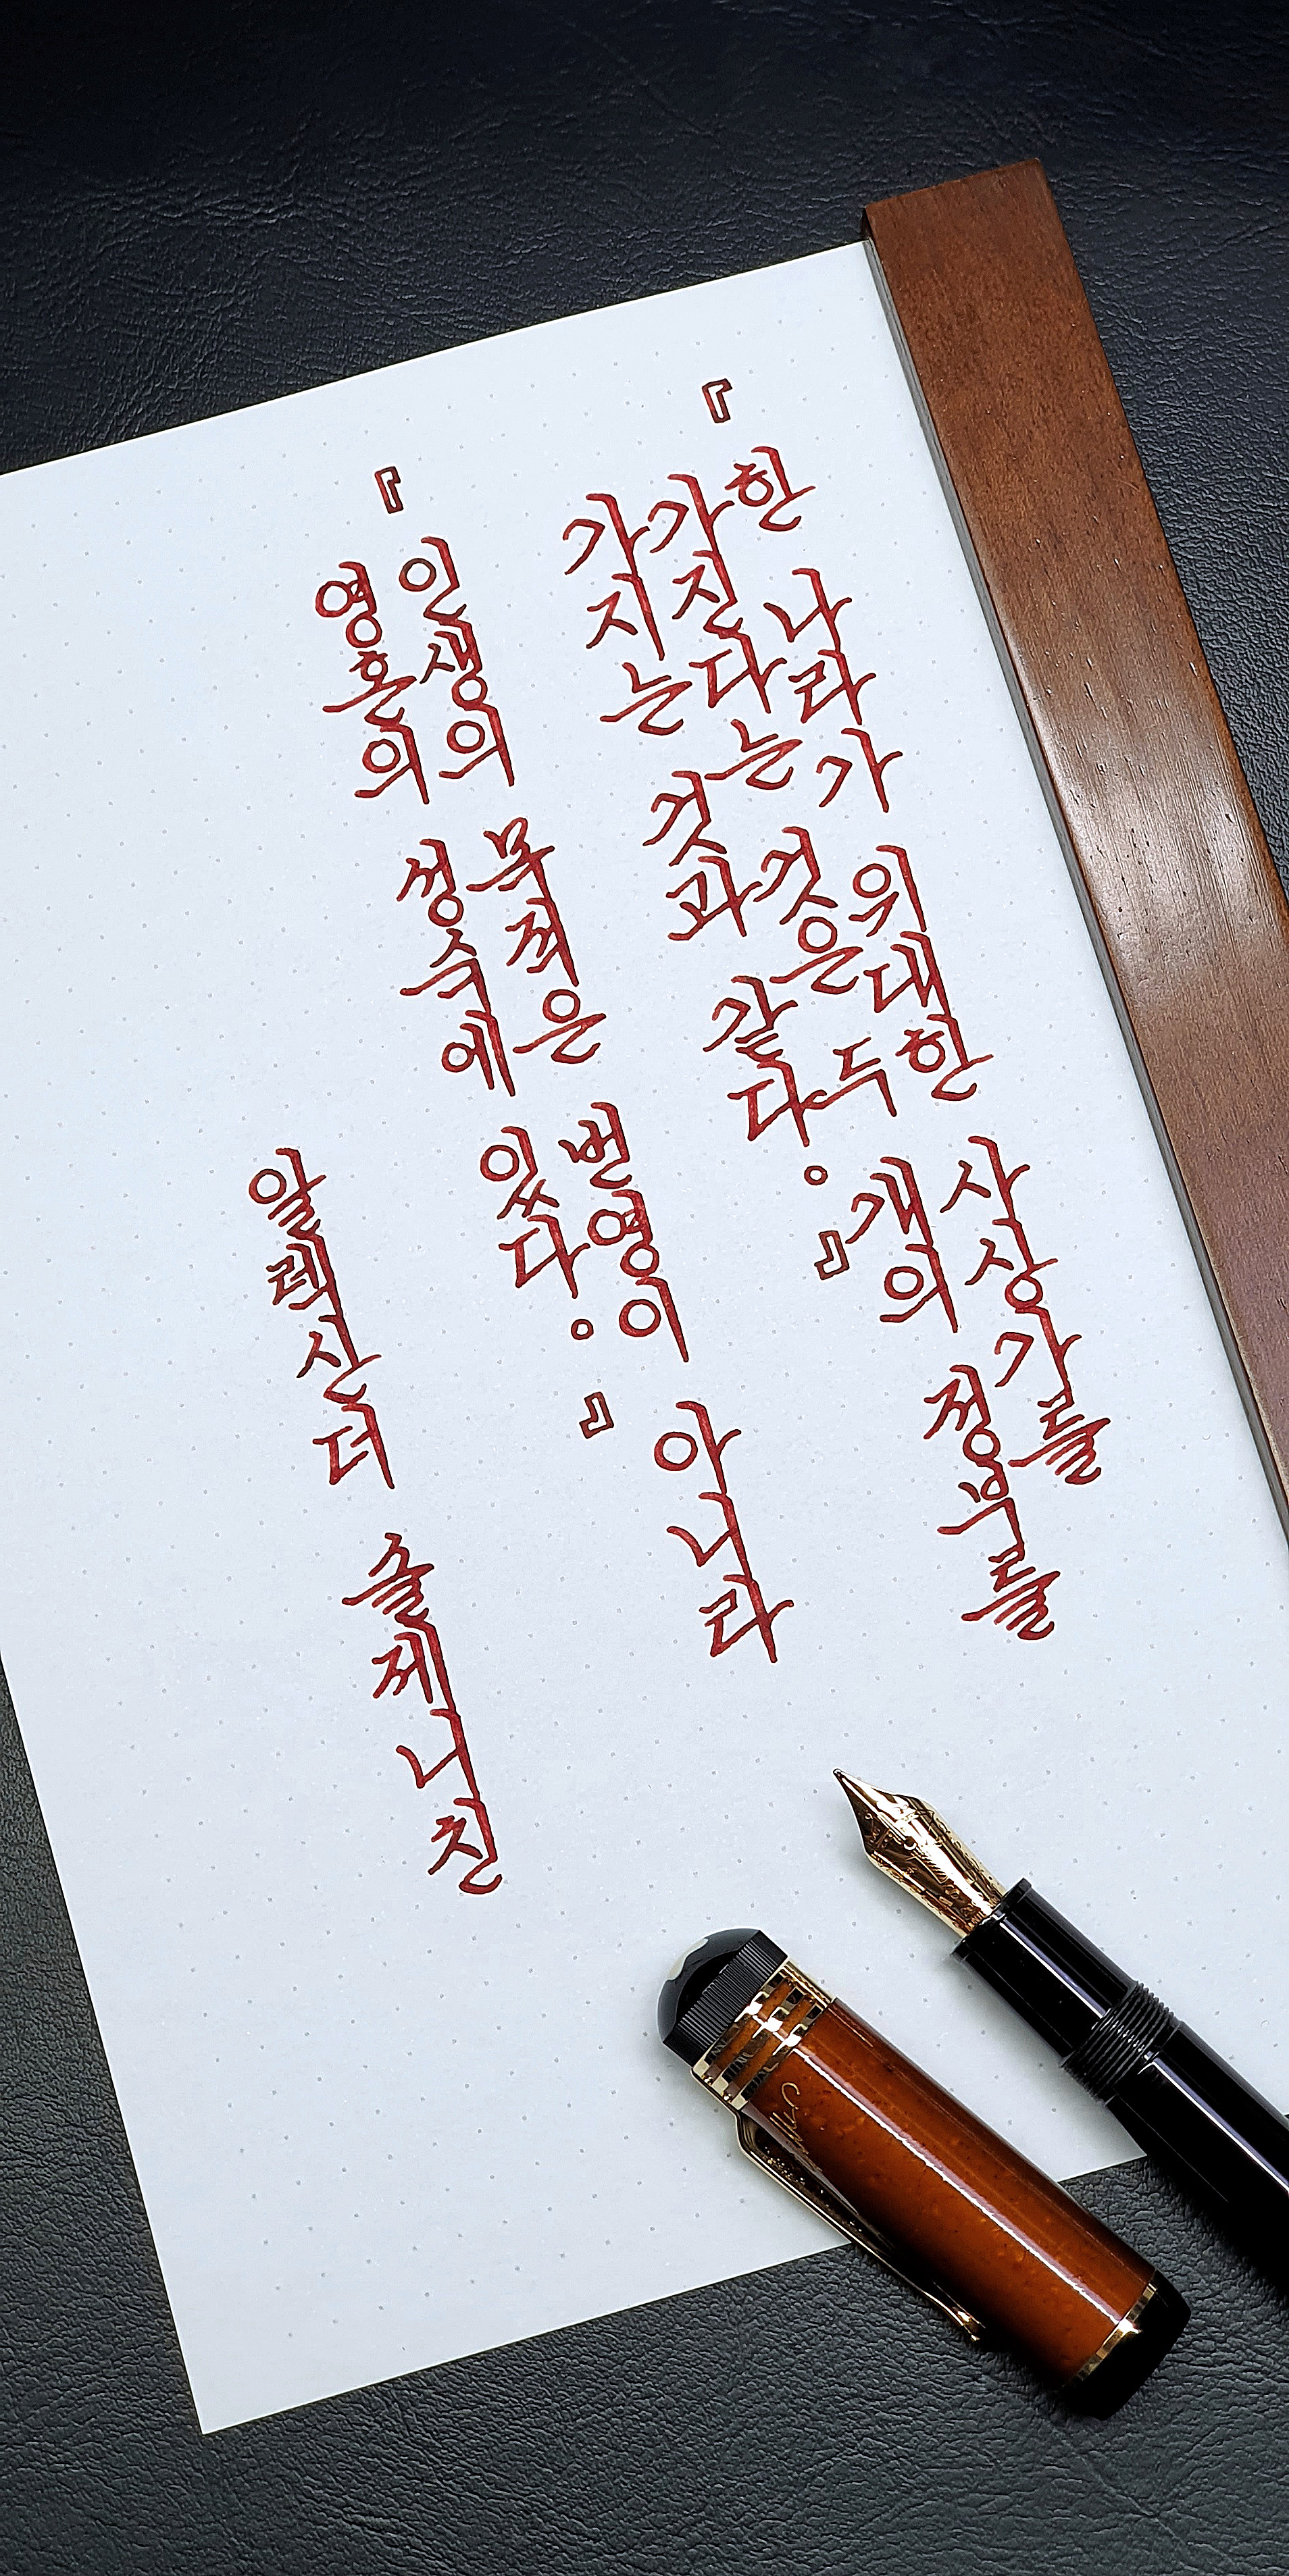 『한 나라가 위대한 사상가를
가진다는 것은 두 개의 정부를
가지는 것과 같다。』
『인생의 목적은 번영이 아니라
영혼의 성숙에 있다。』
알렉산더 솔제니친